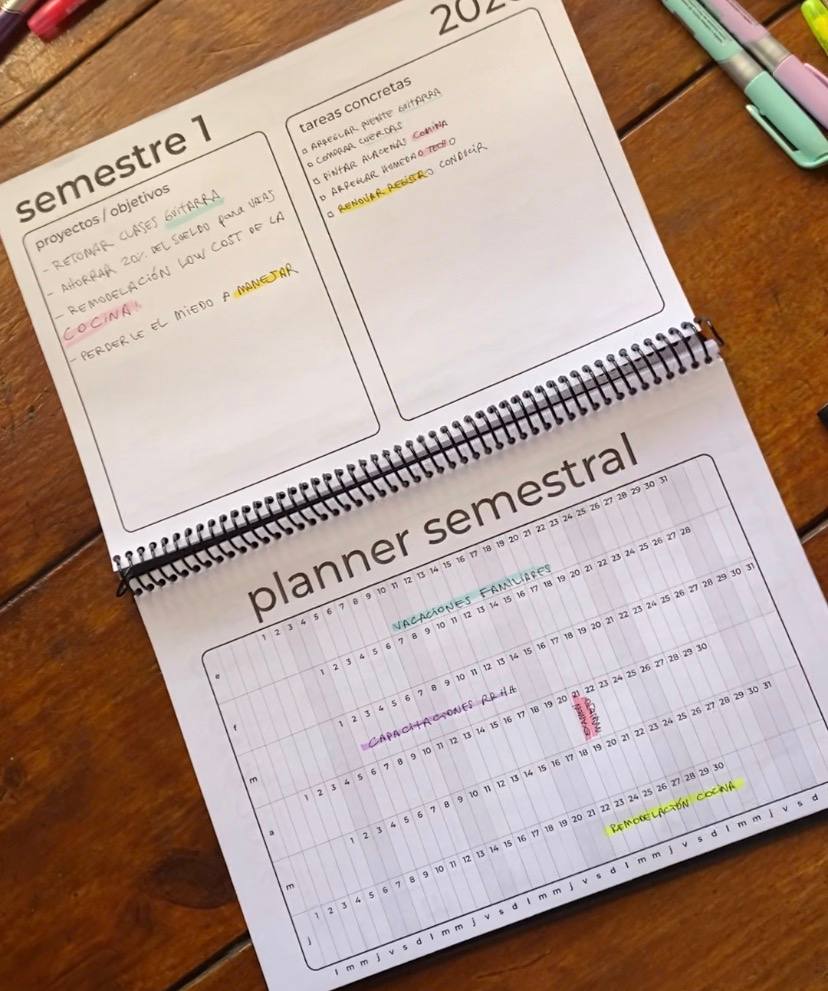 semestre 1
202
proyectos / objetivos
- RETOMAR CLASES GUITARRA
- AHORRAR 20% DEL SUELDO para VACAS
- REMODELACIÓN LOW COST DE LA
COCINA!
- PERDERLE EL MIEDO A MANEJAR
tareas concretas
ARREGLAR PUENTE GUITARRA
COMPRAR CUERDAS
PINTAR ALACENAS COCINA
ARREGLAR HUMEDAD TECHO
RENOVAR REGISTRO CONDUCIR
planner semestral
1 2 3 4 5 6 7 8 9 10 11 12 13 14 15 16 17 18 19 20 21 22 23 24 25 26 27 28 29 30 31
e
VACACIONES FAMILIARES
1 2 3 4 5 6 7 8 9 10 11 12 13 14 15 16 17 18 19 20 21 22 23 24 25 26 27 28
f
1 2 3 4 5 6 7 8 9 10 11 12 13 14 15 16 17 18 19 20 21 22 23 24 25 26 27 28 29 30 31
m
CAPACITACIONES RRHH
1 2 3 4 5 6 7 8 9 10 11 12 13 14 15 16 17 18 19 20 21 22 23 24 25 26 27 28 29 30
a
1 2 3 4 5 6 7 8 9 10 11 12 13 14 15 16 17 18 19 20 21 22 23 24 25 26 27 28 29 30 31
m
1 2 3 4 5 6 7 8 9 10 11 12 13 14 15 16 17 18 19 20 21 22 23 24 25 26 27 28 29 30
j
REMODELACIÓN COCINA
l m m j v s d l m m j v s d l m m j v s d l m m j v s d l m m j v s d l m m j v s d